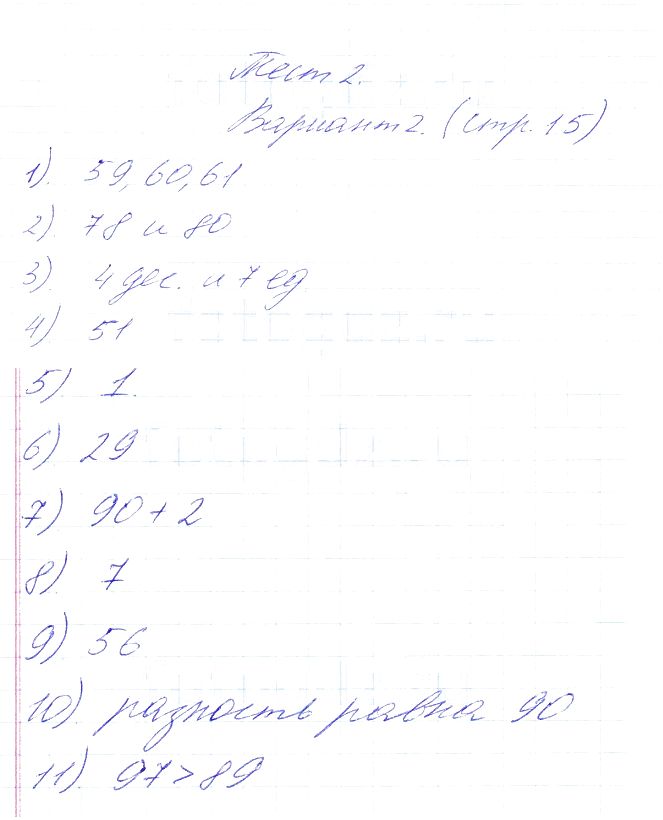 Тест 2.
Вариант 2. (стр. 15)
1). 59, 60, 61
2) 78 и 80
3) 4 дес. и 7 ед
4) 51
5) 1.
6) 29
7) 90 + 2
8) 7
9) 56
10). разность равна 90
11). 97 > 89